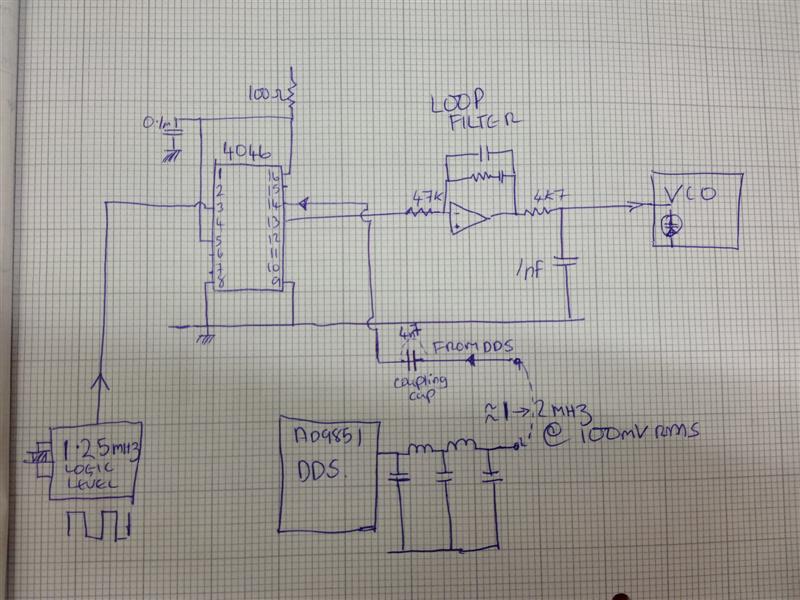 100Ω
0.1μf
4046
1 16
2 15
3 14
4 13
5 12
6 11
7 10
8 9
LOOP
FILTER
47K
-
+
4K7
VCO
1nf
4n7
FROM DDS
coupling
cap
≈1→2MHz
@ 100mV RMS
1.25MHz
LOGIC
LEVEL
AD9851
DDS.